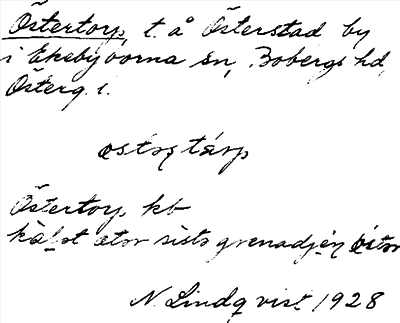 Östertorp, t. å Österstad by
i Ekebyborna sn, Bobergs hd,
Österg. l.
östoṣtårp
Östertorp kb
kàlot ætər sista grenadjä́n östər
N. Lindqvist 1928